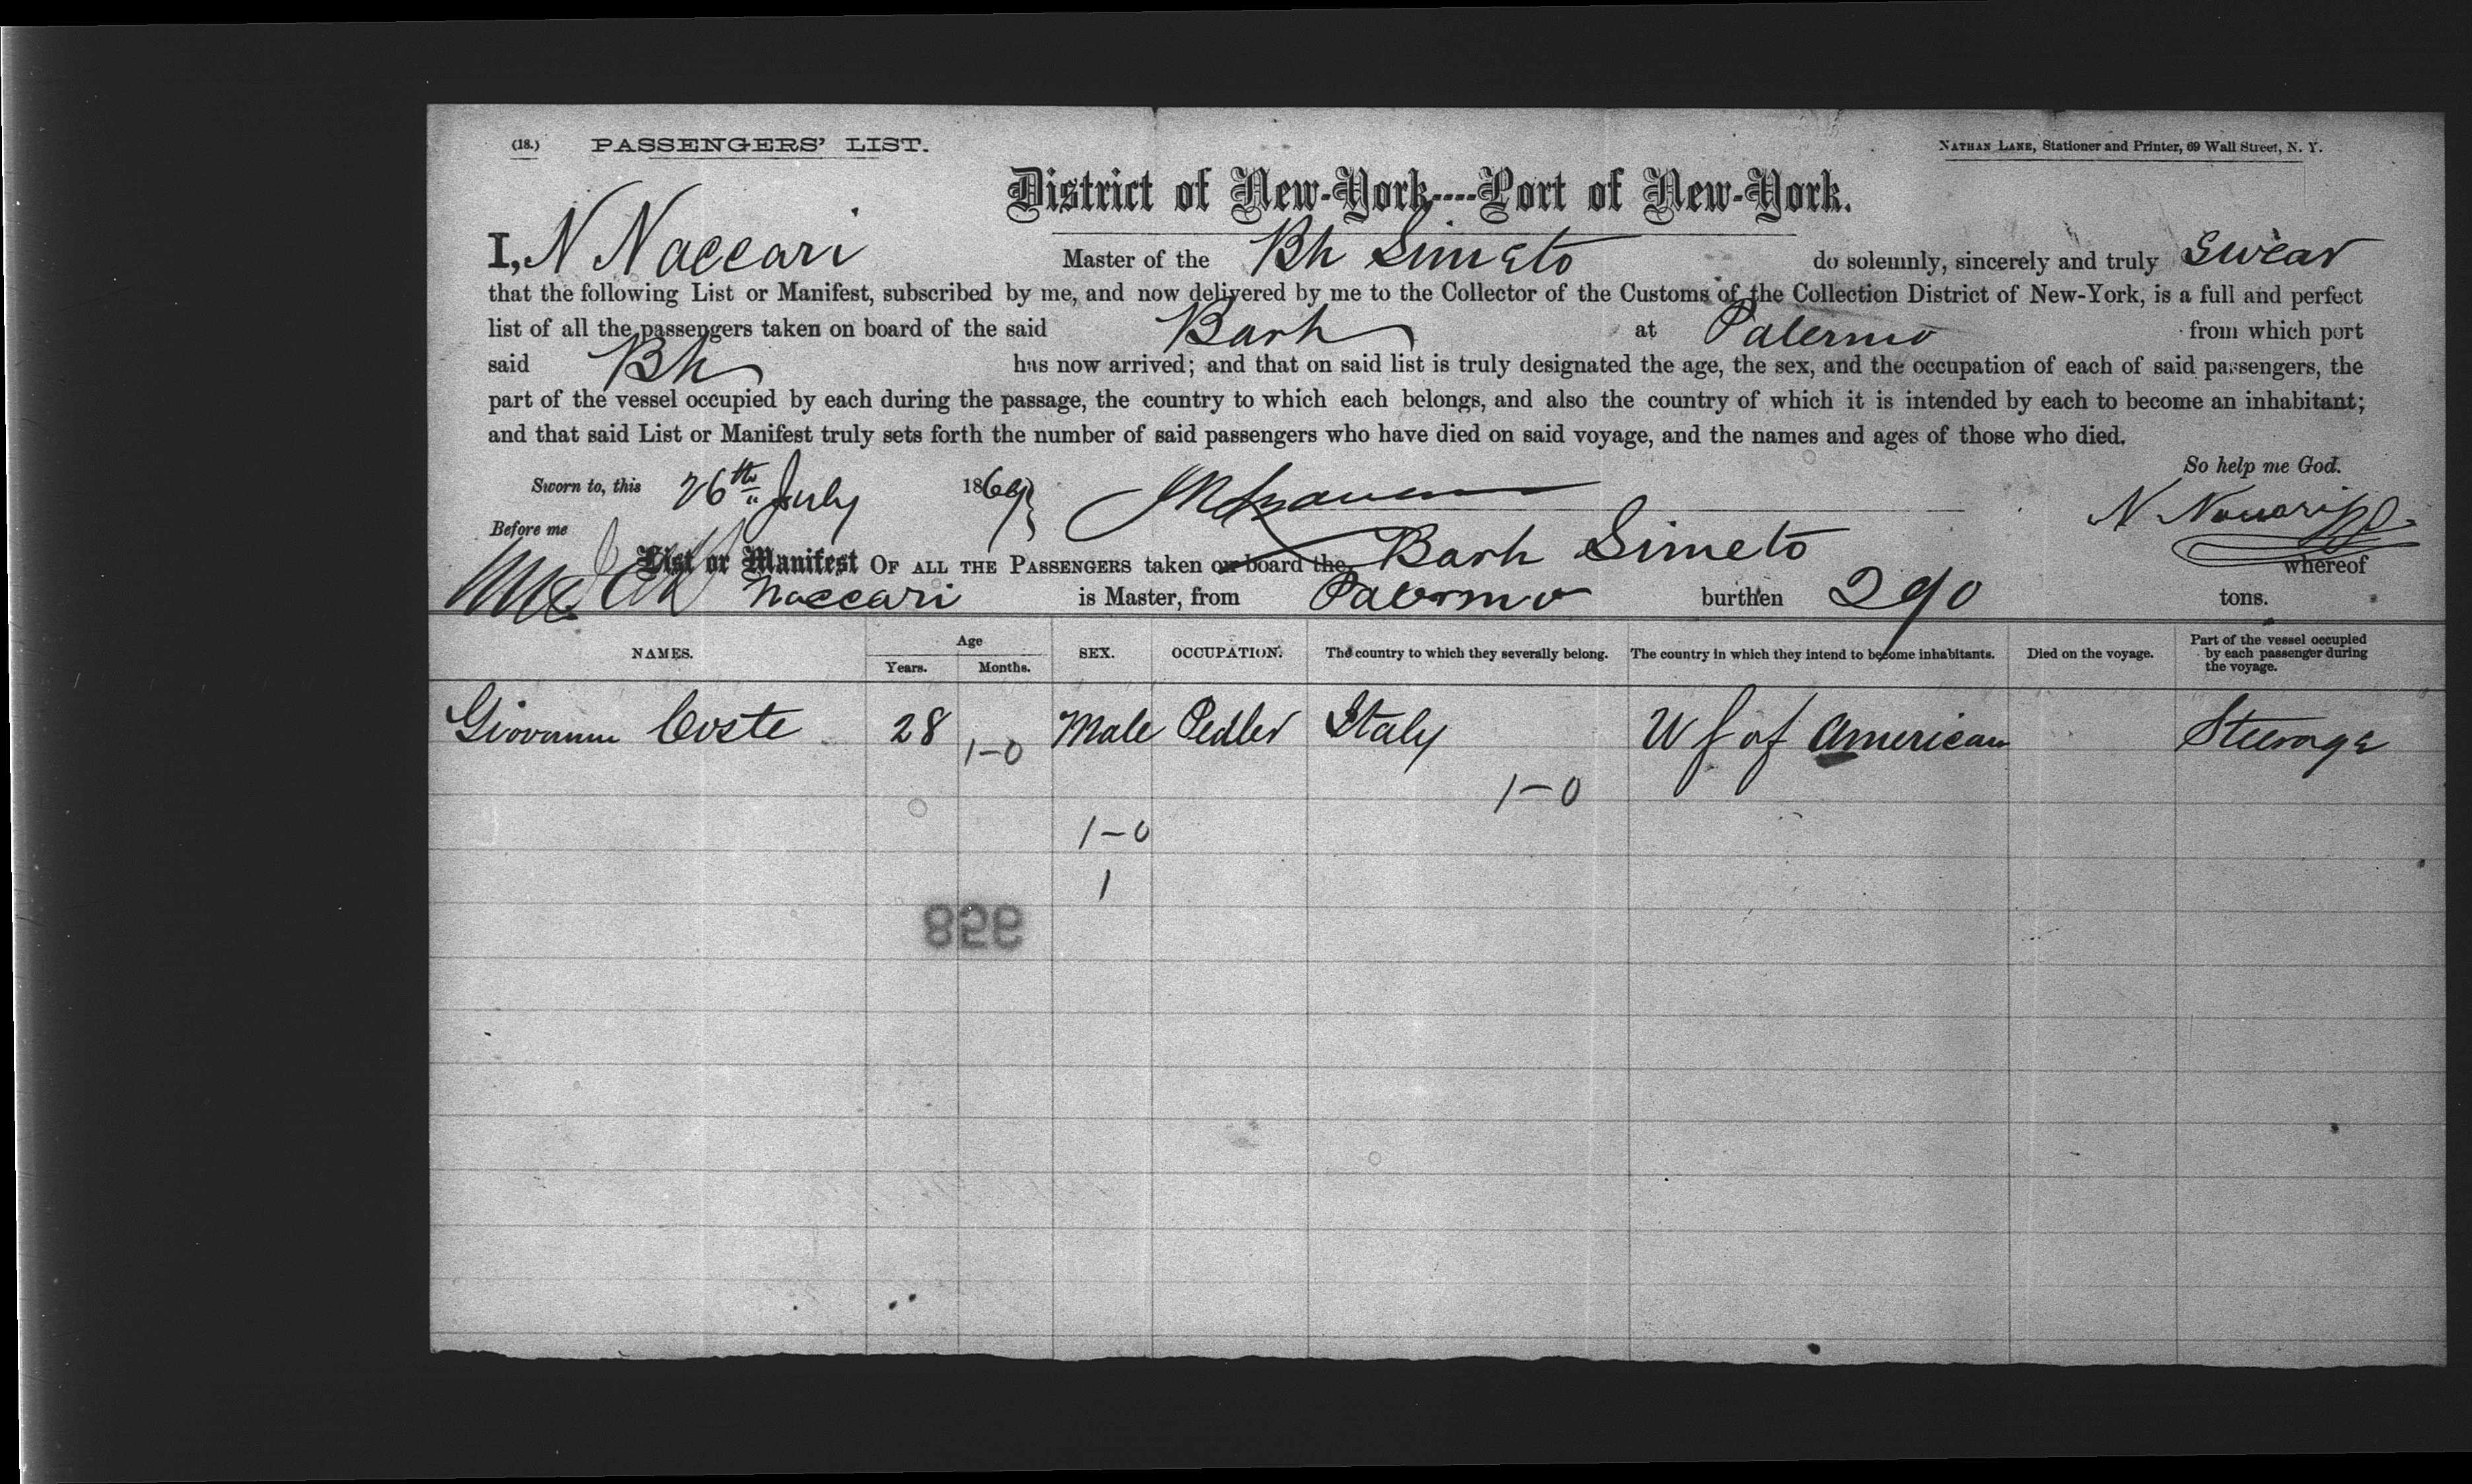 (18.) PASSENGERS' LIST. NATHAN LANE, Stationer and Printer, 69 Wall Street, N. Y.
District of New-York----Port of New-York.
I, N Naccari Master of the Bk Simeto do solemnly, sincerely and truly swear
that the following List or Manifest, subscribed by me, and now delivered by me to the Collector of the Customs of the Collection District of New-York, is a full and perfect
list of all the passengers taken on board of the said Bark at Palermo from which port
said Bk has now arrived; and that on said list is truly designated the age, the sex, and the occupation of each of said passengers, the
part of the vessel occupied by each during the passage, the country to which each belongs, and also the country of which it is intended by each to become an inhabitant;
and that said List or Manifest truly sets forth the number of said passengers who have died on said voyage, and the names and ages of those who died.
So help me God.
Sworn to, this 26th July 1869
Before me
List or Manifest OF ALL THE PASSENGERS taken on board the Bark Simeto whereof
Naccari is Master, from Palermo burthen 290 tons.
NAMES. Age Years. Months. SEX. OCCUPATION. The country to which they severally belong. The country in which they intend to become inhabitants. Died on the voyage. Part of the vessel occupied by each passenger during the voyage.
Giovanni Coste 28 Male Pedler Italy U S of American Steerage
1-0
1-0
1-0
1
856